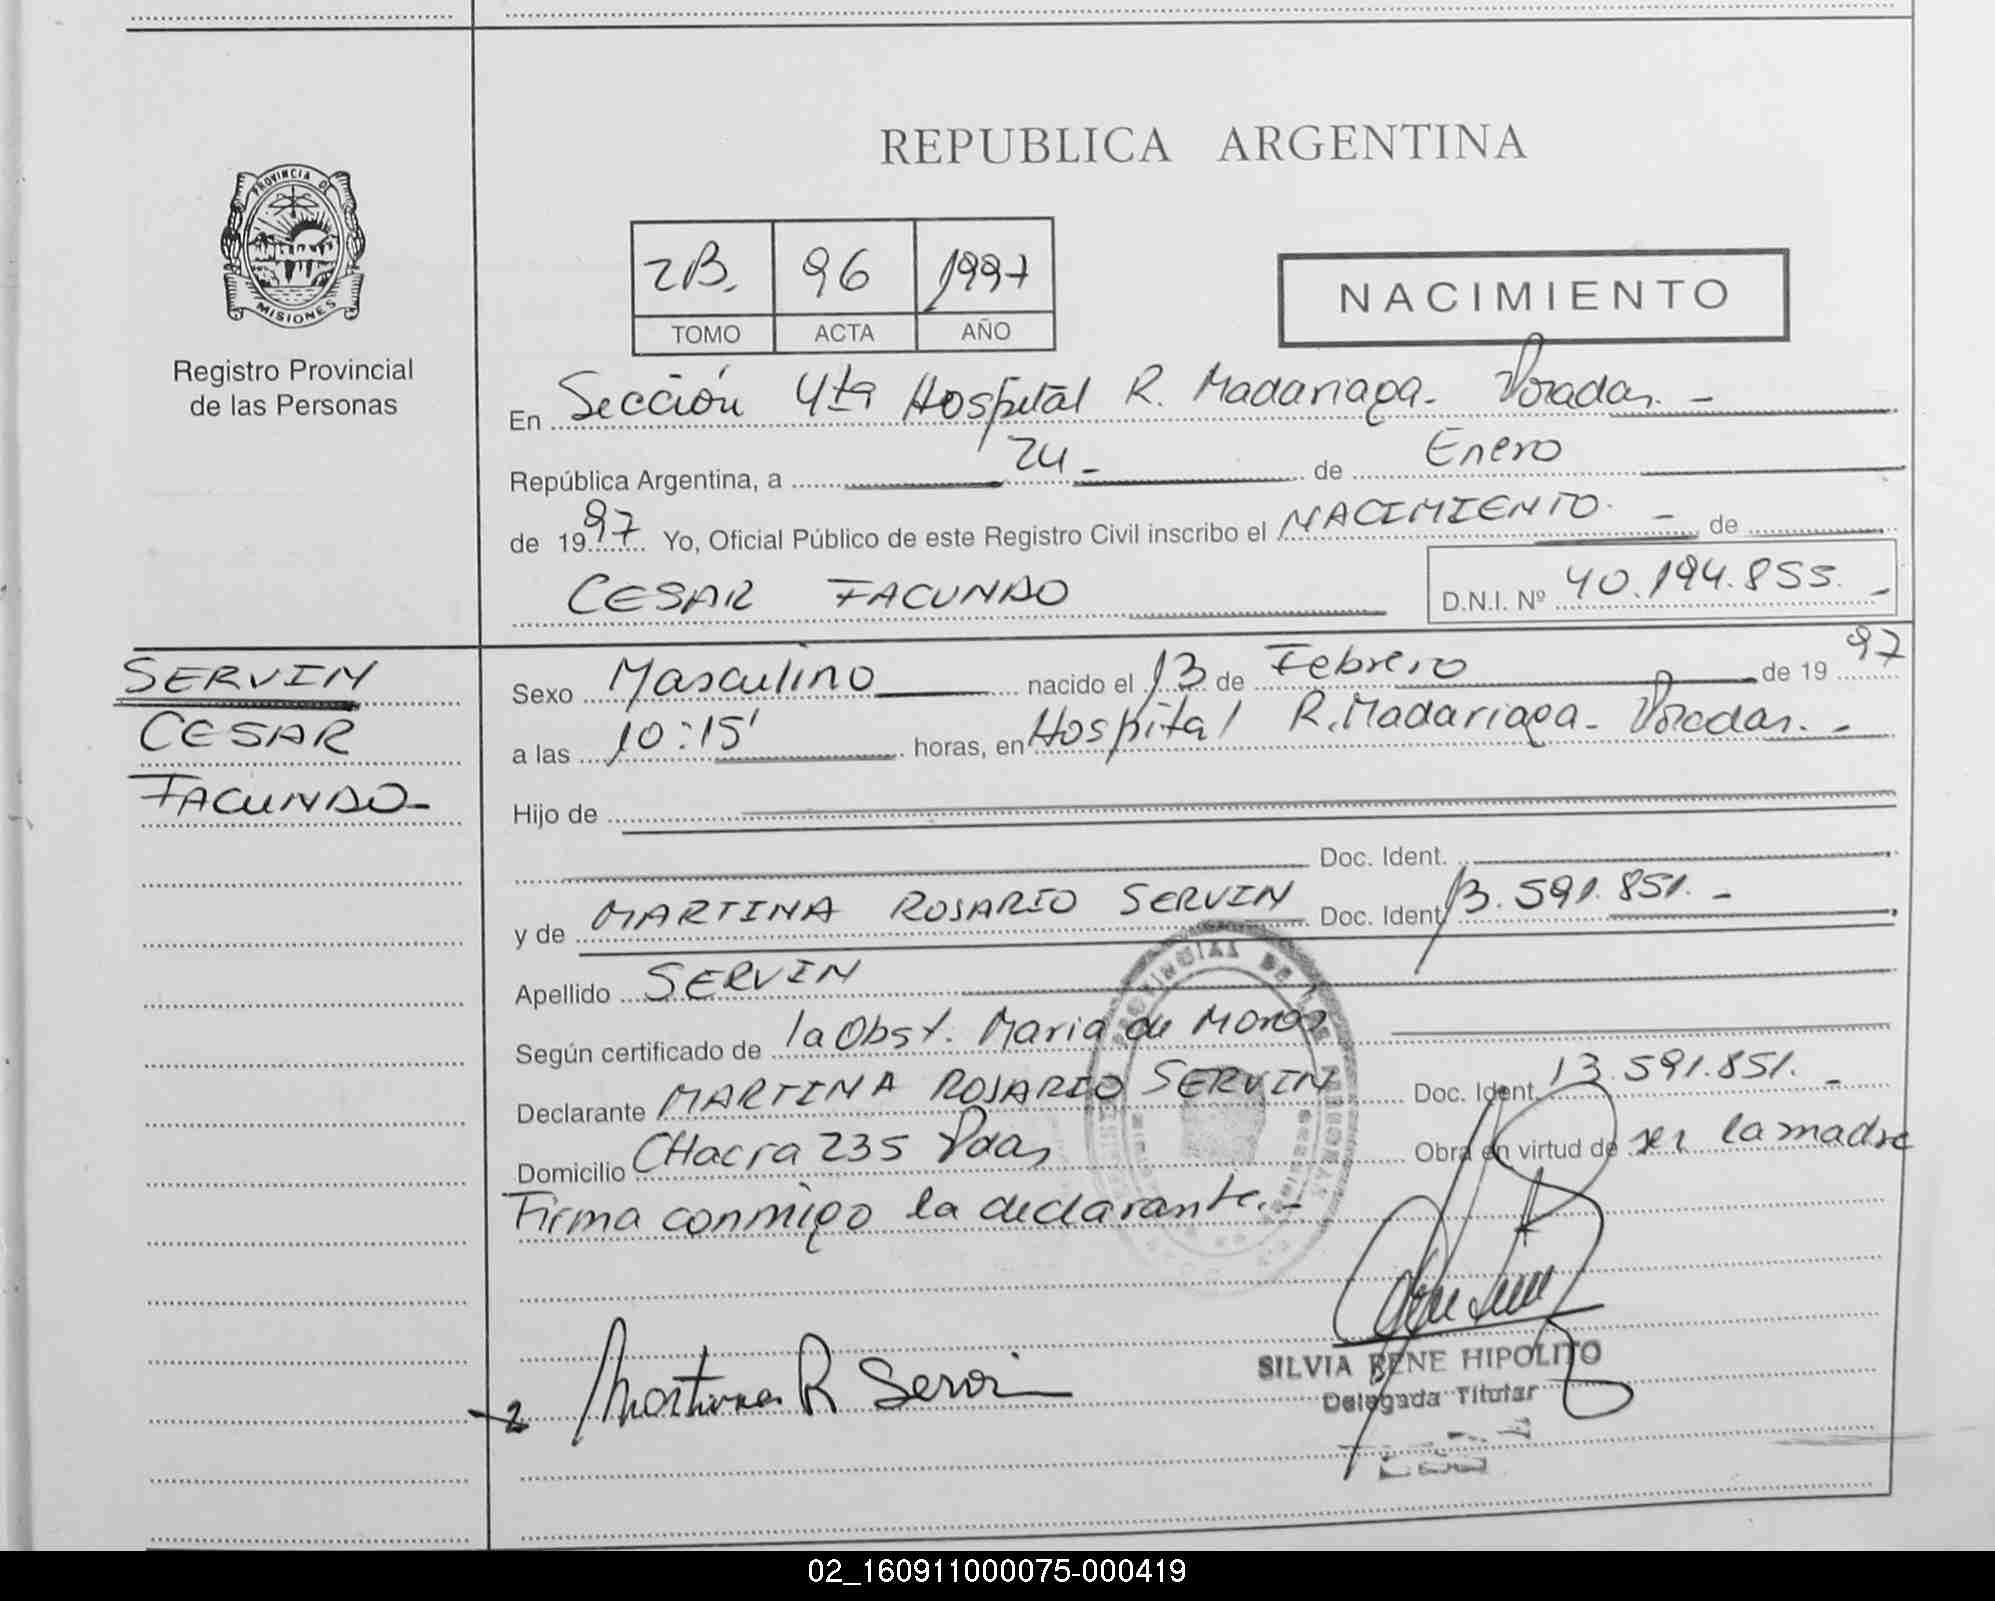 REPUBLICA ARGENTINA
PROVINCIA DE
MISIONES
Registro Provincial
de las Personas
2B. 96 1997
TOMO ACTA AÑO
NACIMIENTO
En Sección 4ta Hospital R. Madariaga. Posadas. -
República Argentina, a 24 - de Enero
de 1997 Yo, Oficial Público de este Registro Civil inscribo el NACIMIENTO. - de
CESAR FACUNDO D.N.I. Nº 40.194.855. -
SERVIN
CESAR
FACUNDO -
Sexo Masculino nacido el 13 de Febrero de 1997
a las 10:15' horas, en Hospital R. Madariaga - Posadas. -
Hijo de
Doc. Ident.
y de MARTINA ROSARIO SERVIN Doc. Ident. 13.591.851. -
Apellido SERVIN
Según certificado de la Obst. Maria de
Declarante MARTINA ROSARIO SERVIN Doc. Ident. 13.591.851. -
Domicilio CHacra 235 Pdas Obra en virtud de ser la madre
Firma conmigo la declarante. -
Martina R Servin
SILVIA RENE HIPOLITO
Delegada Titular
02_160911000075-000419